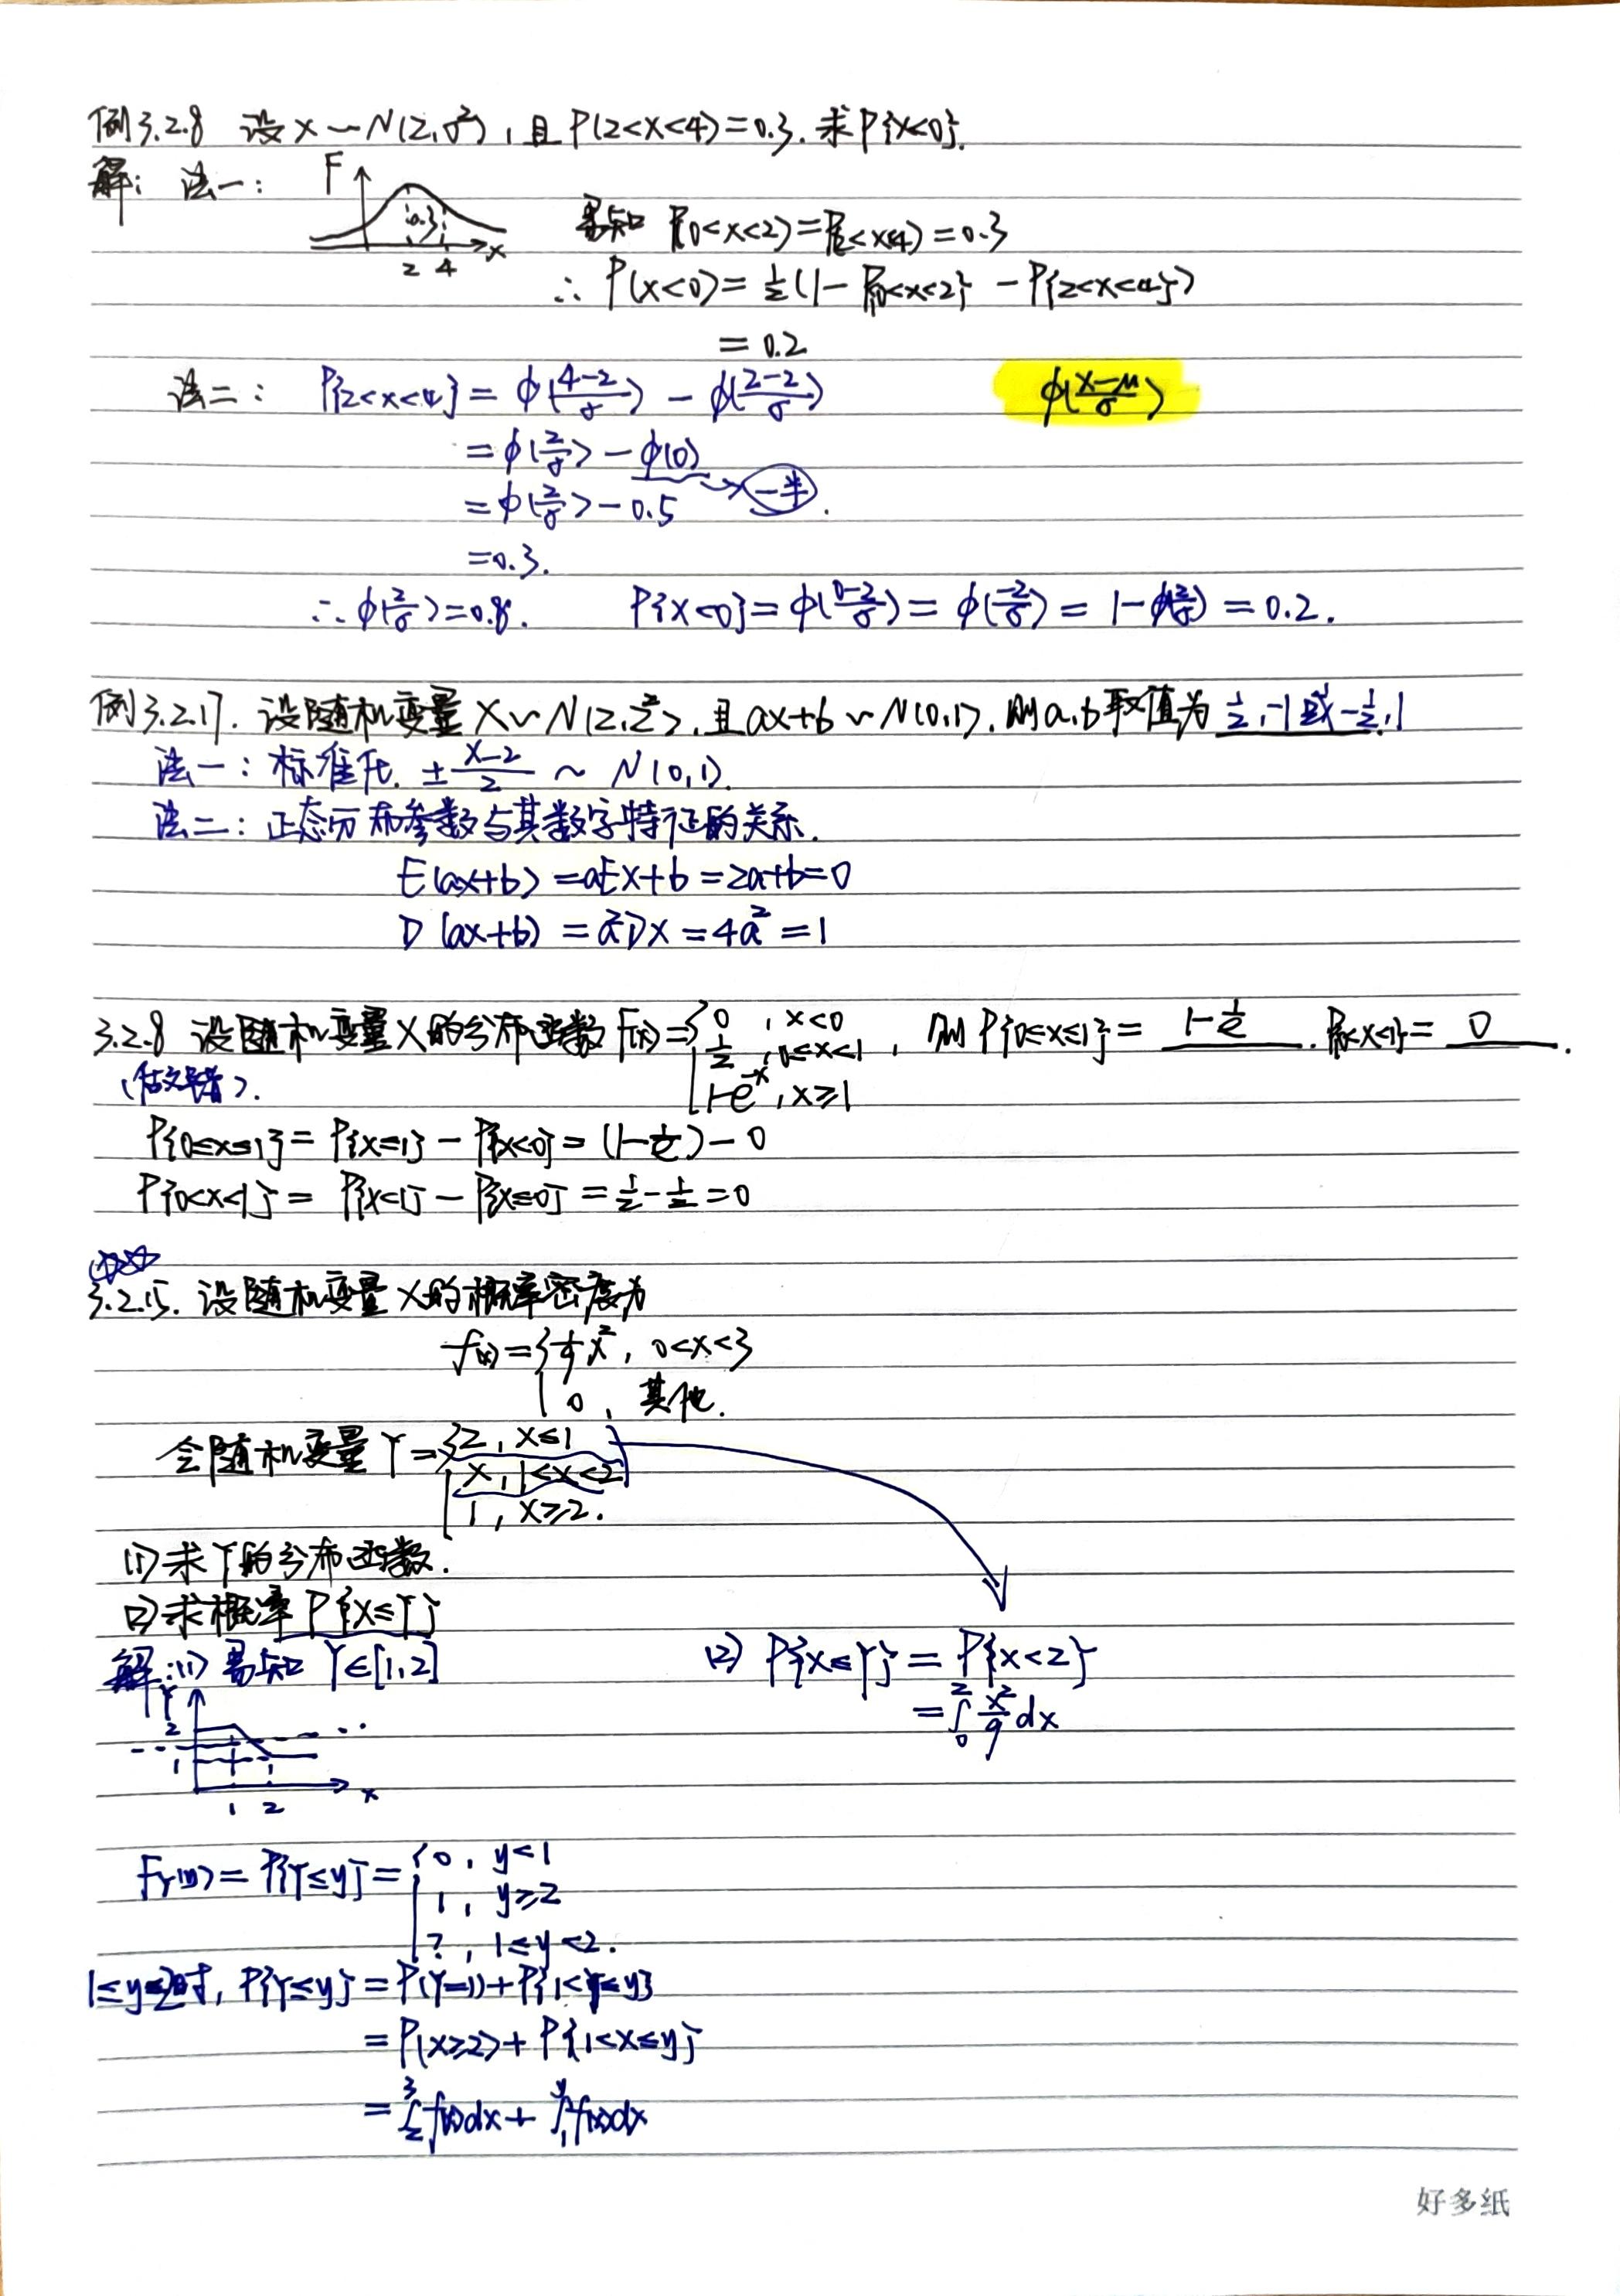 例3.2.8 设X~N(2,σ²),且P(2<X<4)=0.3.求P{X<0}.
解: 法一: F 0.3 2 4 x
易知 P{0<X<2}=P{2<X<4}=0.3
∴ P(X<0)=½(1-P{0<X<2}-P{2<X<4})
=0.2
法二: P{2<X<4}=φ(4-2/σ)-φ(2-2/σ) φ(X-μ/σ)
=φ(2/σ)-φ(0)
=φ(2/σ)-0.5 → 一半.
=0.3.
∴φ(2/σ)=0.8. P{X<0}=φ(0-2/σ)=φ(-2/σ)=1-φ(2/σ)=0.2.
例3.2.17. 设随机变量X~N(2,2²),且aX+b~N(0,1).则a,b取值为 ½,-1或-½,1
法一:标准化. ±X-2/2 ~ N(0,1).
法二:正态分布参数与其数字特征的关系.
E(ax+b)=aEX+b=2a+b=0
D(ax+b)=a²DX=4a²=1
3.2.8 设随机变量X的分布函数F(x)={0,x<0 ½,0≤x<1 1-e^-x,x≥1, 则P{0≤X≤1}= 1-1/e . P{0<X<1}= 0 .
P{0≤X≤1}=P{X≤1}-P{X<0}=(1-1/e)-0
P{0<X<1}=P{X<1}-P{X≤0}=½-½=0
3.2.15. 设随机变量X的概率密度为
f(x)={1/9 x², 0<x<3
0, 其他.
令随机变量Y={2, X≤1
X, 1<X<2
1, X≥2.
(1)求Y的分布函数.
(2)求概率P{X≤Y}
解:(1) 易知 Y∈[1,2] (2) P{X≤Y}=P{X<2}
=∫₀² x²/9 dx
Y 2 1 1 2 x
F_Y(y)=P{Y≤y}={0, y<1
1, y≥2
?, 1≤y<2.
1≤y<2时, P{Y≤y}=P(Y=1)+P{1<Y≤y}
=P(X≥2)+P{1<X≤y}
=∫₂³f(x)dx+∫₁^y f(x)dx
好多纸